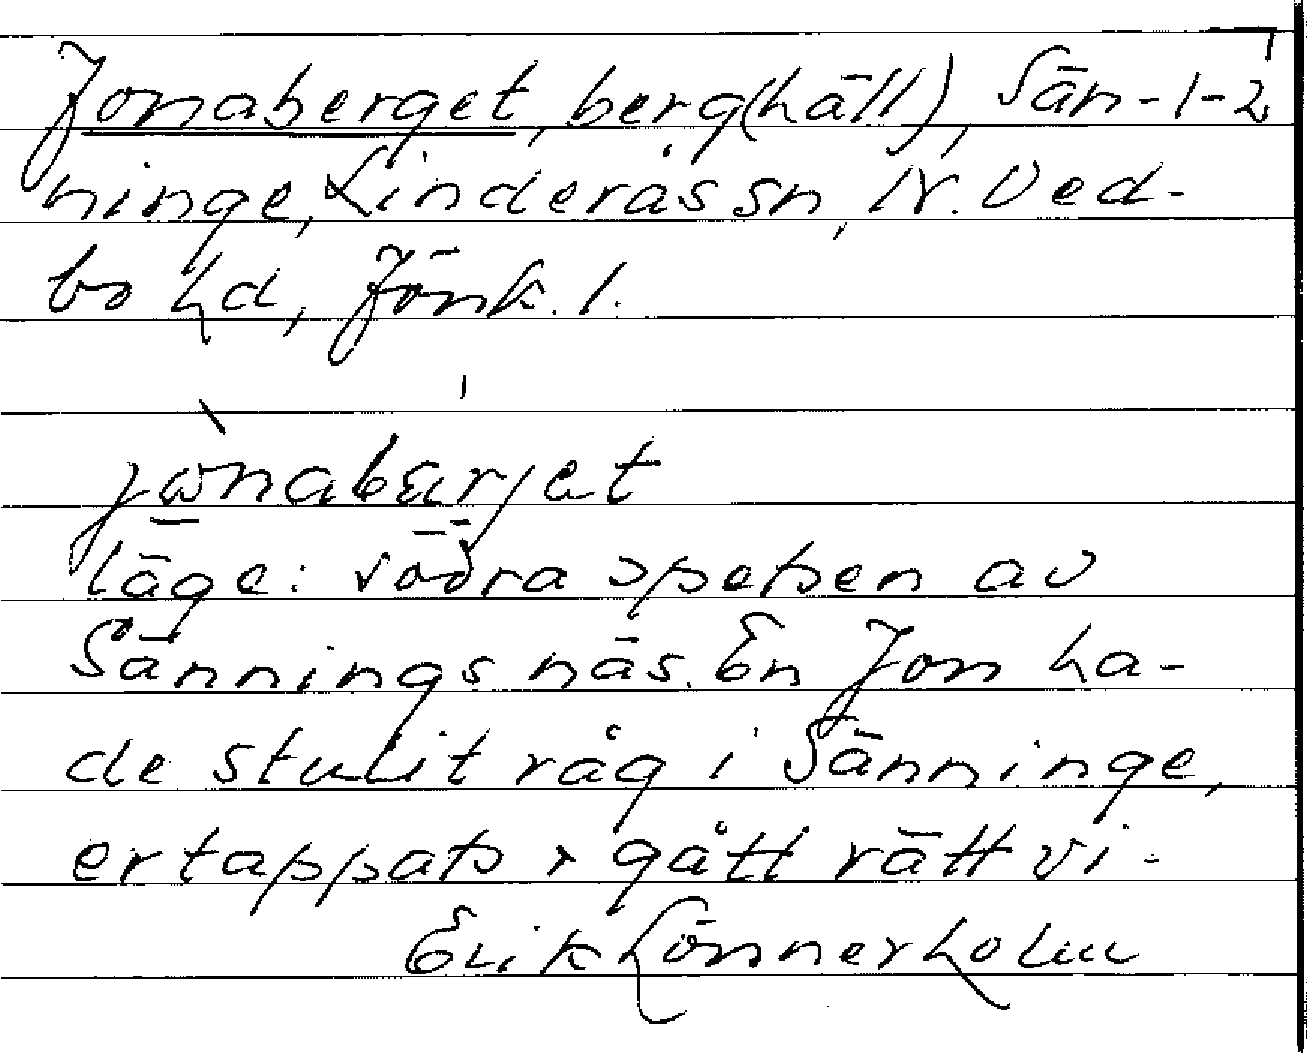 Jonaberget, berg(häll), Sän-1-2
ninge, Linderås sn, N. Ved-
bo hd, Jönk. l.
jωnabærjet
läge: södra spetsen av
Sännings näs. En Jon ha-
de stulit råg i Sänninge,
ertappats o gått rätt vi-
Erik Lönnerholm